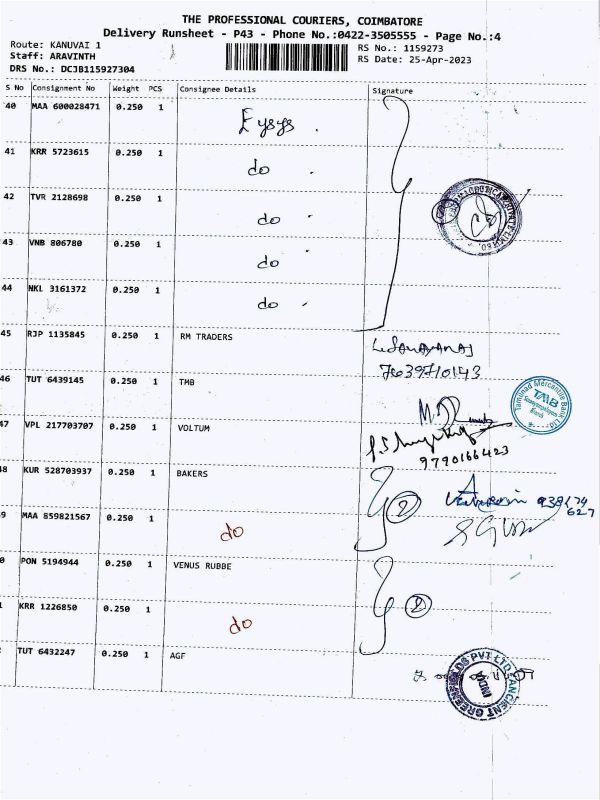 THE PROFESSIONAL COURIERS, COIMBATORE
Delivery Runsheet - P43 - Phone No.:0422-3505555 - Page No.:4
Route: KANUVAI 1
Staff: ARAVINTH
DRS No.: DCJB115927304
RS No.: 1159273
RS Date: 25-Apr-2023
S No Consignment No Weight PCS Consignee Details Signature
40 MAA 600028471 0.250 1
41 KRR 5723615 0.250 1 do
42 TVR 2128698 0.250 1 do
43 VNB 806780 0.250 1 do
44 NKL 3161372 0.250 1 do
45 RJP 1135845 0.250 1 RM TRADERS
46 TUT 6439145 0.250 1 TMB
Tamilnad Mercantile Bank Ltd.
TMB
47 VPL 217703707 0.250 1 VOLTUM
9790166423
48 KUR 528703937 0.250 1 BAKERS
2
9 MAA 859821567 0.250 1 do
0 PON 5194944 0.250 1 VENUS RUBBE
2
1 KRR 1226850 0.250 1 do
TUT 6432247 0.250 1 AGF
ANCIENT GREENFIELDS PVT LTD
INDIA